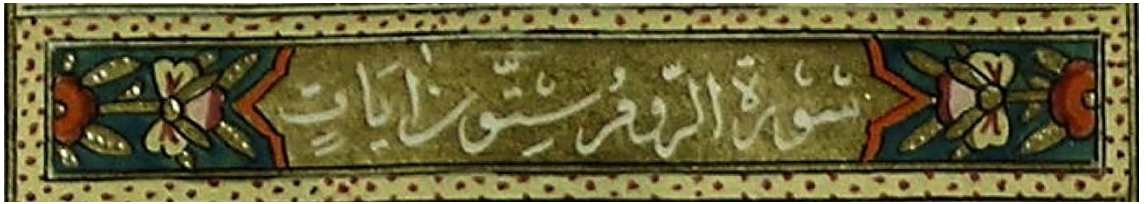 سُورَةُ الرُّومِ سِتُّونَ اٰيَاتٍ